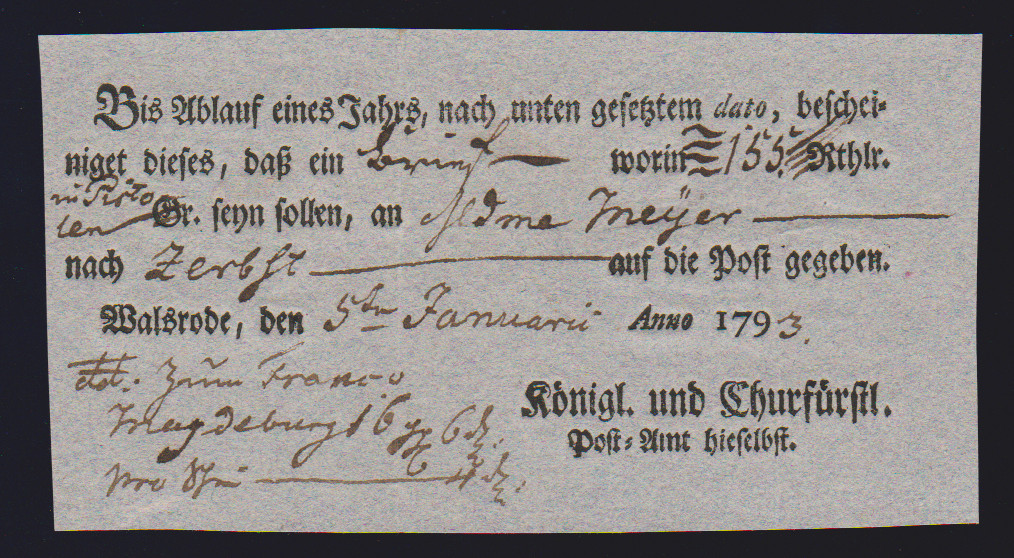 Bis Ablauf eines Jahrs, nach unten gesetztem dato, beschei-
niget dieses, daß ein Brief worin 155 Rthlr.
in Pisto
len Gr. seyn sollen, an Mdme Meÿer
nach Zerbst auf die Post gegeben.
Walsrode, den 5ten Januarii Anno 1793.
dd. zum Franco
Königl. und Churfürstl.
Magdeburg 16 gg 6 d.
Post-Amt hieselbst.
pro Schein 4 d.